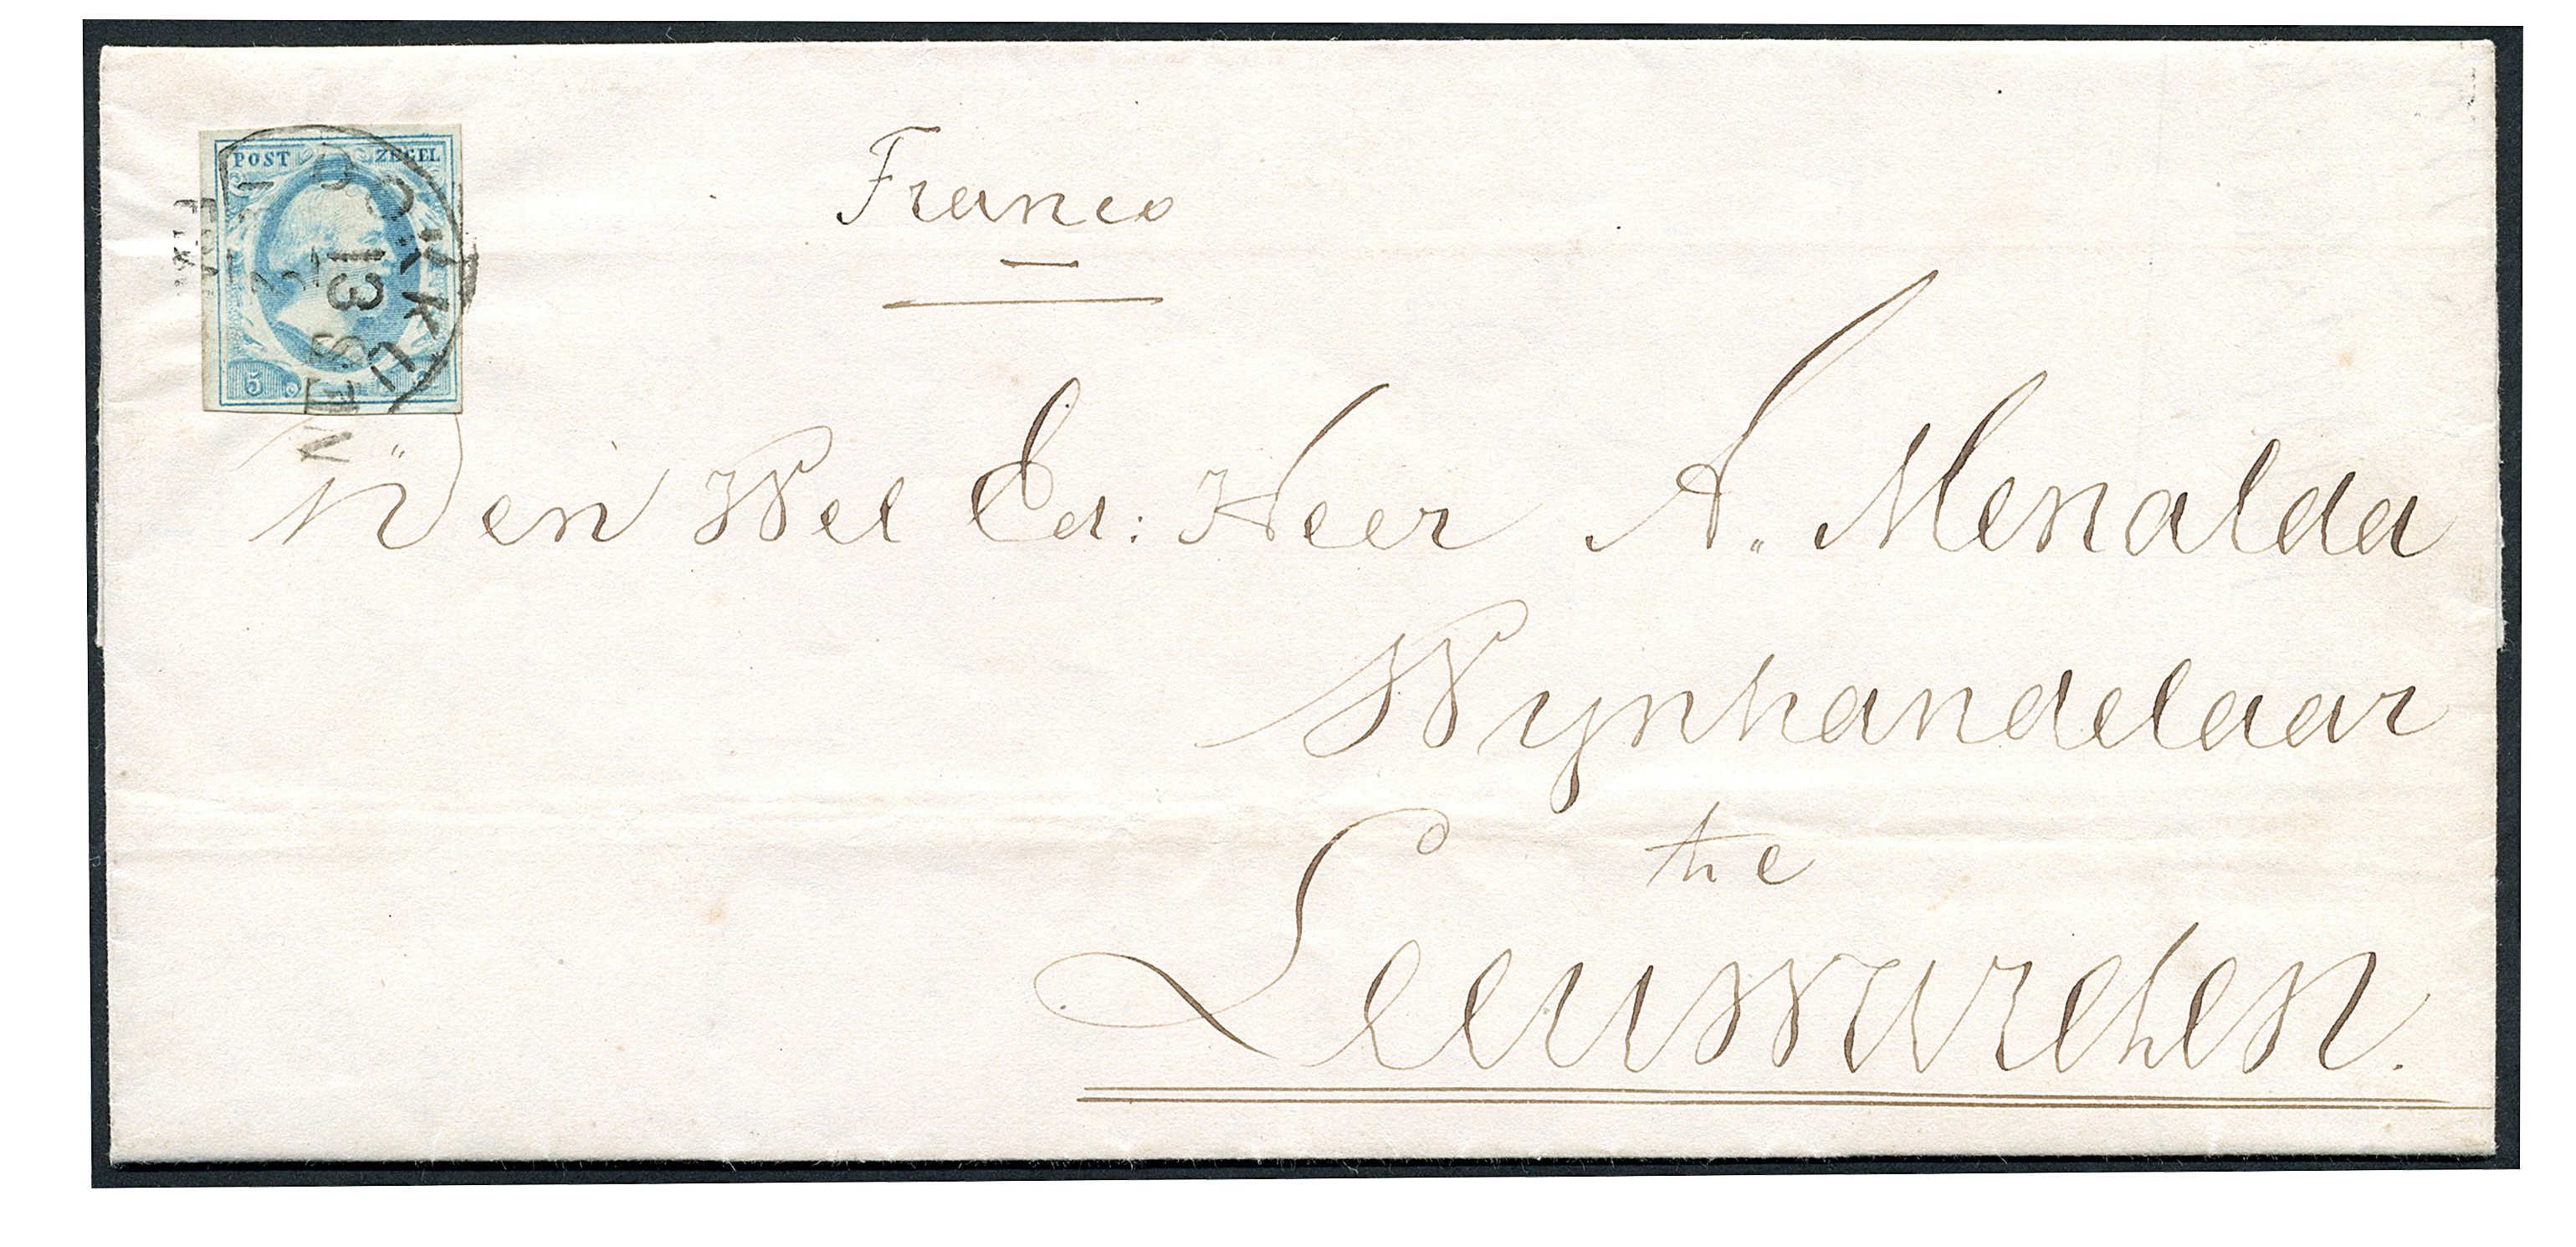 POST ZEGEL
5
13
Franco
Den Wel Ed: Heer A. Menalda
Wynhandelaar
te
Leeuwarden.